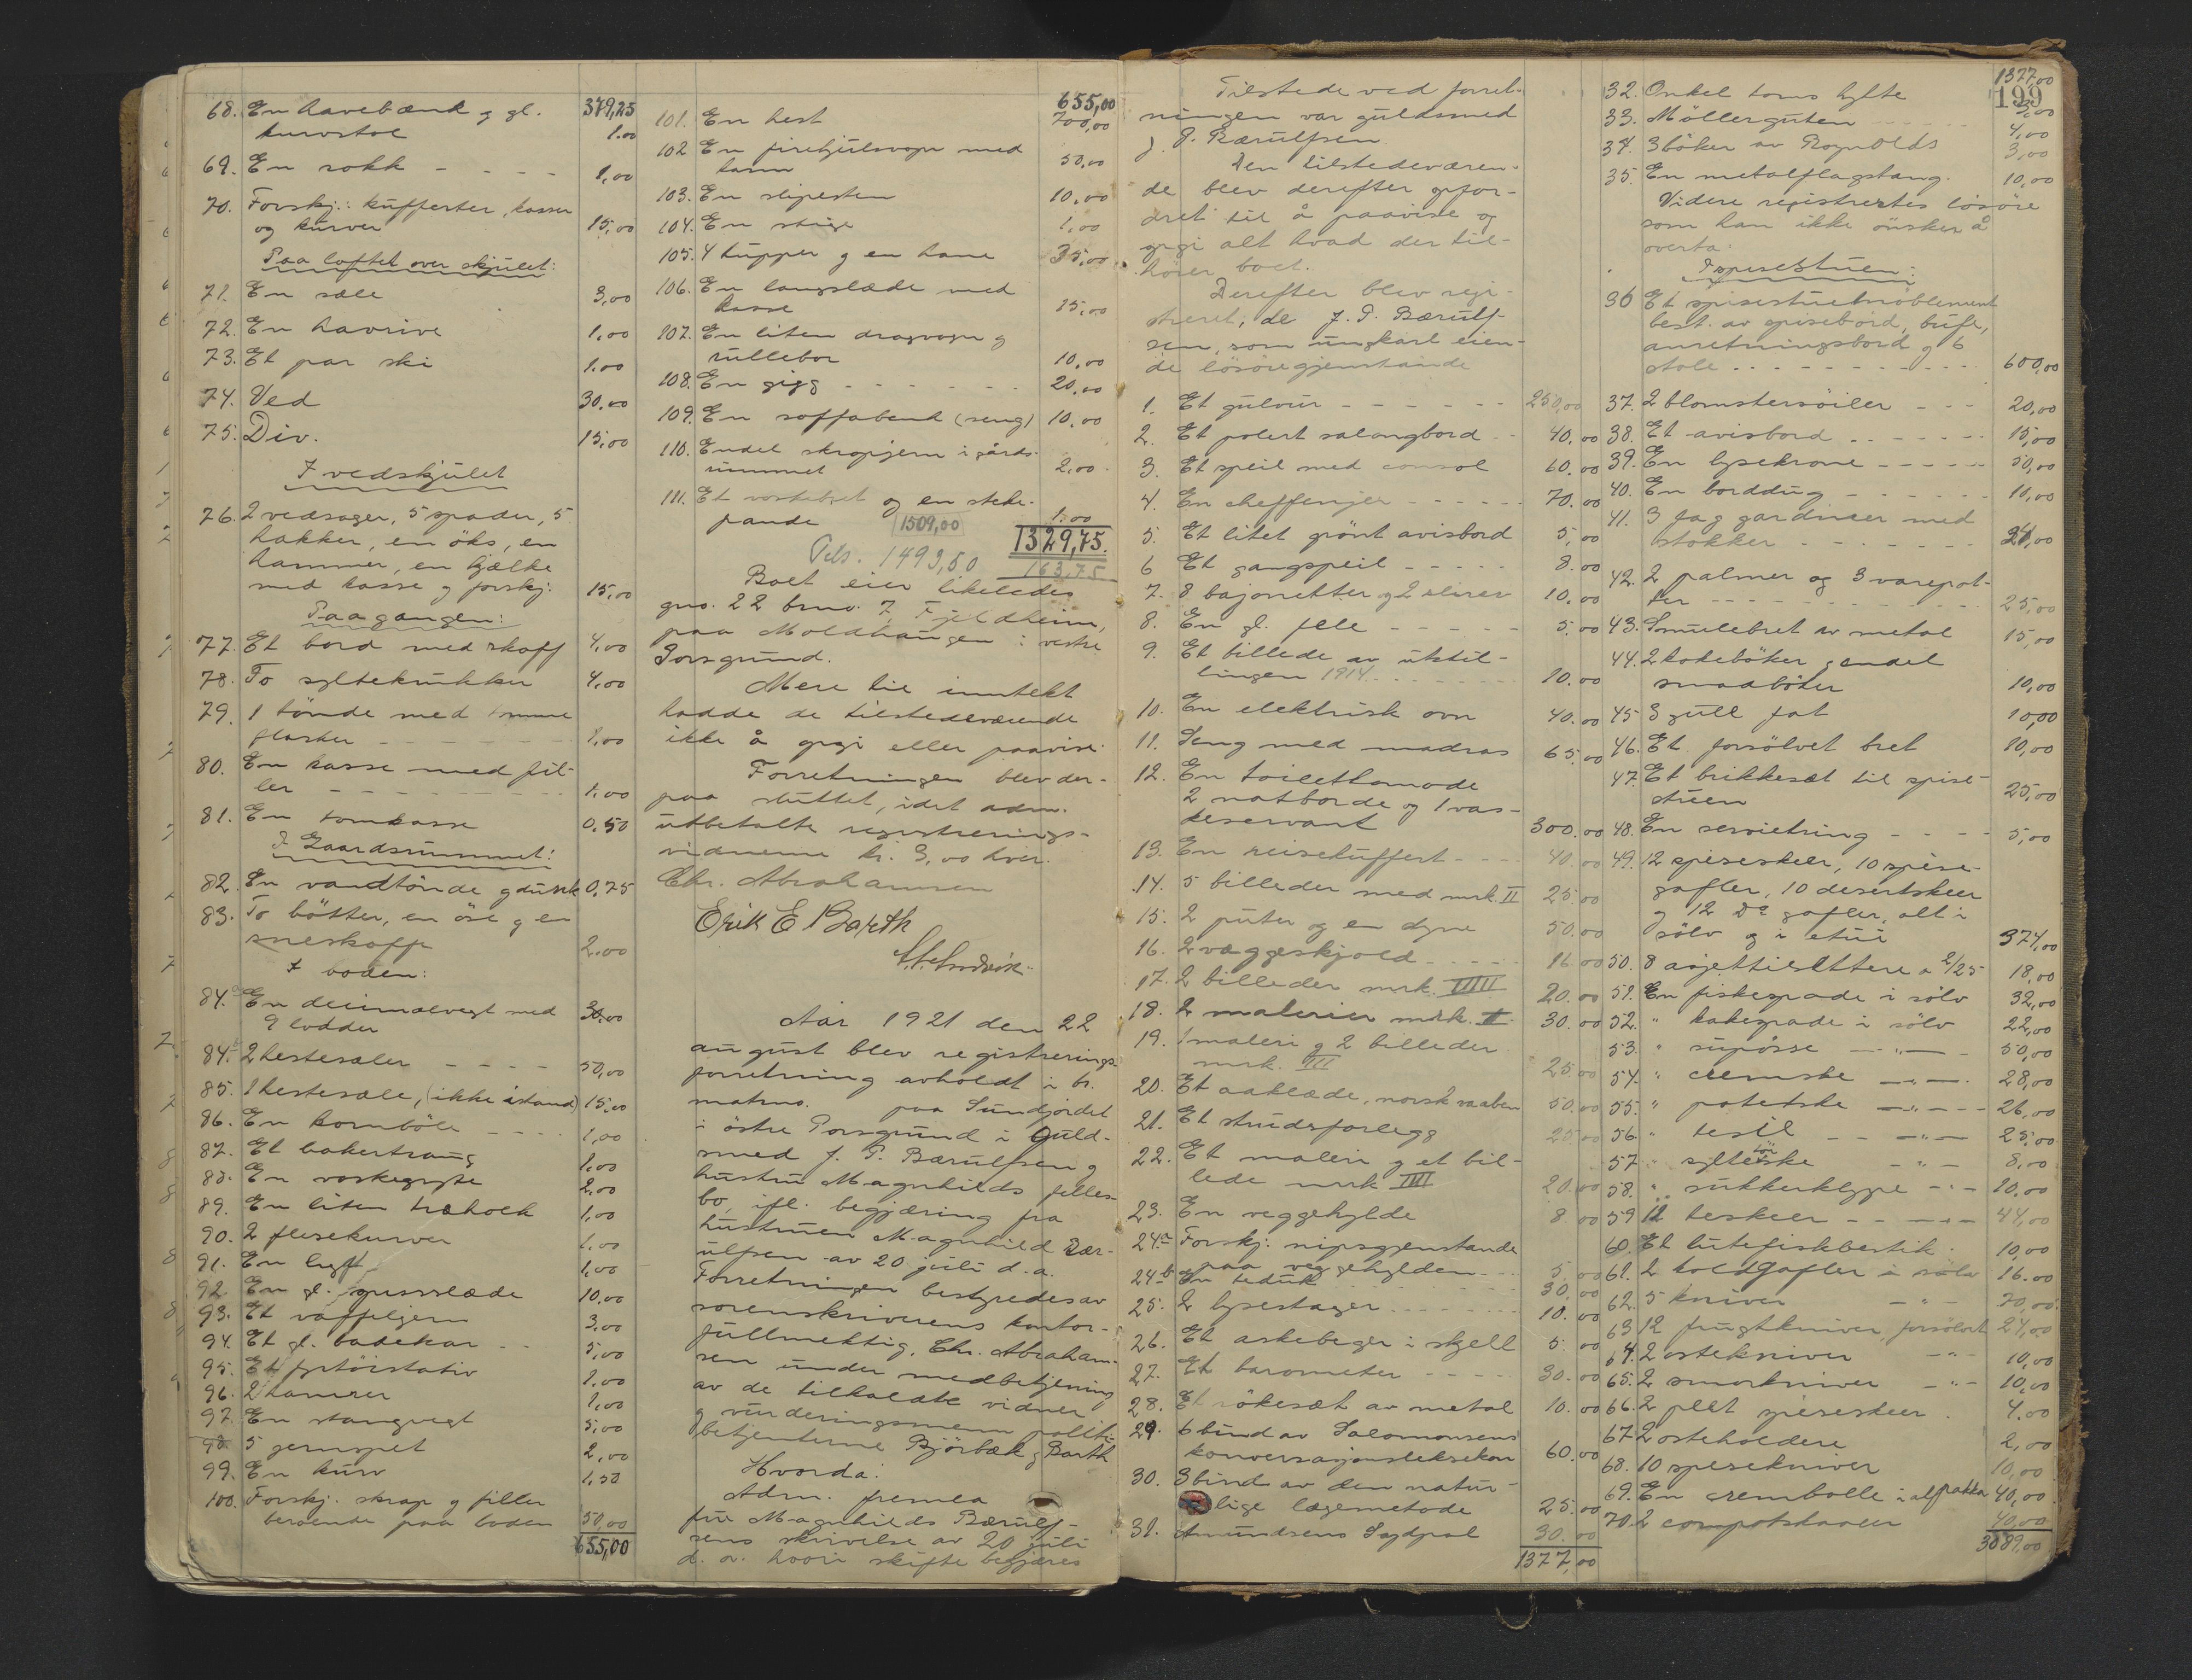 379,25
68. En havebænk g gl.
kurvstol 1.00
69. En rokk - - - - 1,00
70. Forskj.: kufferter, kasser
og kurver 15,00
Paa loftet over skjulet:
71. En sæle 3,00
72. En havrive 1,00
73. Et par ski 1.00
74. Ved 30.00
75. Div. 15,00
I vedskjulet
76. 2 vedsager, 5 spader, 5
hakker, en öks, en
hammer, en kjælke
med kasse g forskj. 15,00
Paa gangen:
77. Et bord med skaff 4,00
78. To syltekrukker 4,00
79. 1 tönde med tomme
flasker - - - - 1,00
80. En kasse med fil-
ler - - - - - 1.00
81. En tomkasse 0.50
I Gaardsrummet:
82. En vandtönde g dunk 0,75
83. To bötter, en öse g en
sneskoffe 2.00
I boden:
84.a En decimalvegt med
9 lodder 30.00
84.b 2 hestesæler - - - - 50,00
85. 1 hestesæle, (ikke istand) 15,00
86. En kornböle - - - - 1,00
87. Et bakertraug 1.00
88. En vaskegryte 2,00
89. En liten træholk 1,00
90. 2 flisekurver 1.00
91. En lygt 1,00
92. En gl. spisslæde 10.00
93. Et vaffeljern 3,00
94. Et gl. badekar - - 5,00
95. Et fyrtöistativ 1.00
96. 2 hamrer 1,00
97. En stangvegt 5,00
98. 5 jernspet 2,00
99. En kurv 1,50
100. Forskj. skrap g filler
beroende paa boden 50,00
655,00
655,00
101. En hest 700,00
102 En firehjulsvogn med
karm 50,00
103. En slipesten 10,00
104. En stige 1,00
105. 4 hupper g en hane 35,00
106. En langslæde med
kasse 15,00
107. En liten dragvogn g
rullebor 10,00
108. En gigg - - - - - 20,00
109. En soffabenk (seng) 10,00
110. Endel skrapjern i gårds-
rummet 2,00
111. Et vaskebret og en steke-
pande 1.00
1509,00 1329,75.
Tils. 1493,50 163,75
Boet eier likeledes
gno. 22 bno. 7 Fjeldheim,
paa Moldhaugen i vestre
Porsgrund.
Mere til inntekt
hadde de tilstedeværende
ikke å opgi eller paavise.
Forretningen blev der-
paa sluttet, idet adm.
utbetalte registrerings-
vidnerne kr. 3,00 hver.
Chr. Abrahamsen
Erik E Barth
Aar 1921 den 22
august blev registrerings-
forretning avholdt i br.
matrno. paa Sundjordet
i östre Porsgrund i Guld-
smed J. P. Bærulfsen g
hustru Magnhilds felles-
bo, ifl. begjæring fra
hustruen Magnhild Bær-
ulfsen av 20 juli d.a.
Forretningen bestyredes av
sorenskriverens kontor-
fullmektig, Chr. Abraham-
sen under medbetjening
av de tilkaldte vidner
g vurderingsmenn politi-
betjenterne Björbæk g Barth
Hvorda:
Adm. fremla
fru Magnhilds Bærulf-
sens skrivelse av 20 juli
d. a. hvori skifte begjæres
Tilstede ved forret-
ningen var guldsmed
J. P. Bærulfsen.
Den tilstedeværen-
de blev derefter opfor-
dret til å paavise og
opgi alt hvad der til-
hörer boet.
Derefter blev regi-
streret, de J. P. Bærulf-
sen, som ungkarl eien-
de lösöregjenstande
1. Et gulvur - - - - - 250,00
2. Et polert salongbord - - 40.00
3. Et speil med consol 60.00
4. En cheffenjer - - - - 70.00
5. Et litet grönt avisbord 5,00
6 Et gangspeil - - - - - 8.00
7. 8 bajonetter g 2 slirer 10.00
8. En gl. fele - - - - - 5.00
9. Et billede av utstil-
lingen 1914 - - - - - 10.00
10. En elektrisk ovn 40.00
11. Seng med madras 65.00
12. En toilettkomode
2 natborde og 1 vas-
keservant 300.00
13. En reisekuffert - - - 40.00
14. 5 billeder med mrk. II 25.00
15. 2 puter og en dyne 50.00
16. 2 væggeskjold - - - - 16.00
17. 2 billeder mrk. IIIII 20.00
18. 2 malerier mrk. II 30.00
19. 1 maleri g 2 billeder
mrk. III 25.00
20. Et aaklæde, norsk vaaben 50.00
21. Et strudsforlegg 25.00
22. Et maleri g et bil-
lede mrk IIII 20.00
23. En veggehylde 8.00
24a Forskj. nipsgjenstande
paa veggehylden - - - 5.00
24b En teduk 30.00
25. 2 lysestager - - - - - 10.00
26. Et askebeger i skjell 5.00
27. Et barometer - - - - 30.00
28. Et rökesæt av metal 10.00
29. 6 bind av Salomonsens
konversasjonsleksekon 60.00
30. 3 bind av den natur-
lige lægemetode 25.00
31. Amundsens Sydpol 30.00
1377,00
1377,00
199
32. Onkel toms hytte 3,00
33. Möllerguten 4,00
34. 3 böker av Rognolds 3,00
35. En metalflagstang. 10,00
Videre registrertes lösöre
som han ikke önsker å
overta:
I spisestuen:
36 Et spisestuemöblement
best. av spisebord, bufe,
anretningsbord g 6
stole - - - - - - - 600,00
37. 2 blomstersöiler - - - 20,00
38. Et avisbord - - - - - 15,00
39. En lysekrone - - - - - 50,00
40. En borddug - - - - - 10,00
41. 3 fag gardiner med
stokker - - - - - 24,00
42. 2 palmer og 3 varepot-
ter - - - - - - - 25,00
43. Smulebret av metal 15,00
44. 2 kokeböker g endel
smaaböker 10,00
45 3 gull fat 10,00
46. Et forsölvet bret 10,00
47. Et brikkesæt til spise-
stuen 25,00
48. En servietring - - - - 5,00
49. 12 spiseskeer, 10 spise-
gafler, 10 desertskeer
g 12 Do gafler, alt i
sölv g i etui 374,00
50. 8 asjettilsettere a 2/25 18,00
51. En fiskespade i sölv 32,00
52. " kakespade i sölv 22,00
53. " supösse - " - 50,00
54. " cremske - " - 28,00
55. " potetske - " - 26,00
56. " tesil - " - 25,00
57. " syltetöiske - " - 8,00
58. " sukkerklype - " - 10,00
59 12 teskeer - " - 44,00
60. Et lutefiskbestik. 10,00
61. 2 koldgafler i sölv 16.00
62. 5 kniver - " - 70,00
63 12 frugtkniver, forsölvet 24,00
64. 2 ostekniver - " - 10,00
65. 2 smörkniver - " - 10,00
66. 2 plet spiseskeer. 4.00
67. 2 osteholdere 2,00
68. 10 spisekniver 10,00
69. En crembolle i alpakka 40,00
70. 2 compotskaaler 40,00
3089,00